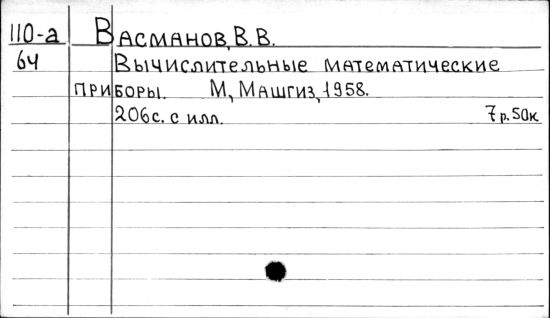 110-а Васманов, В.В.
64 Вычислительные математические
приборы. М, Машгиз, 1958.
206с. с илл. 7р.50к